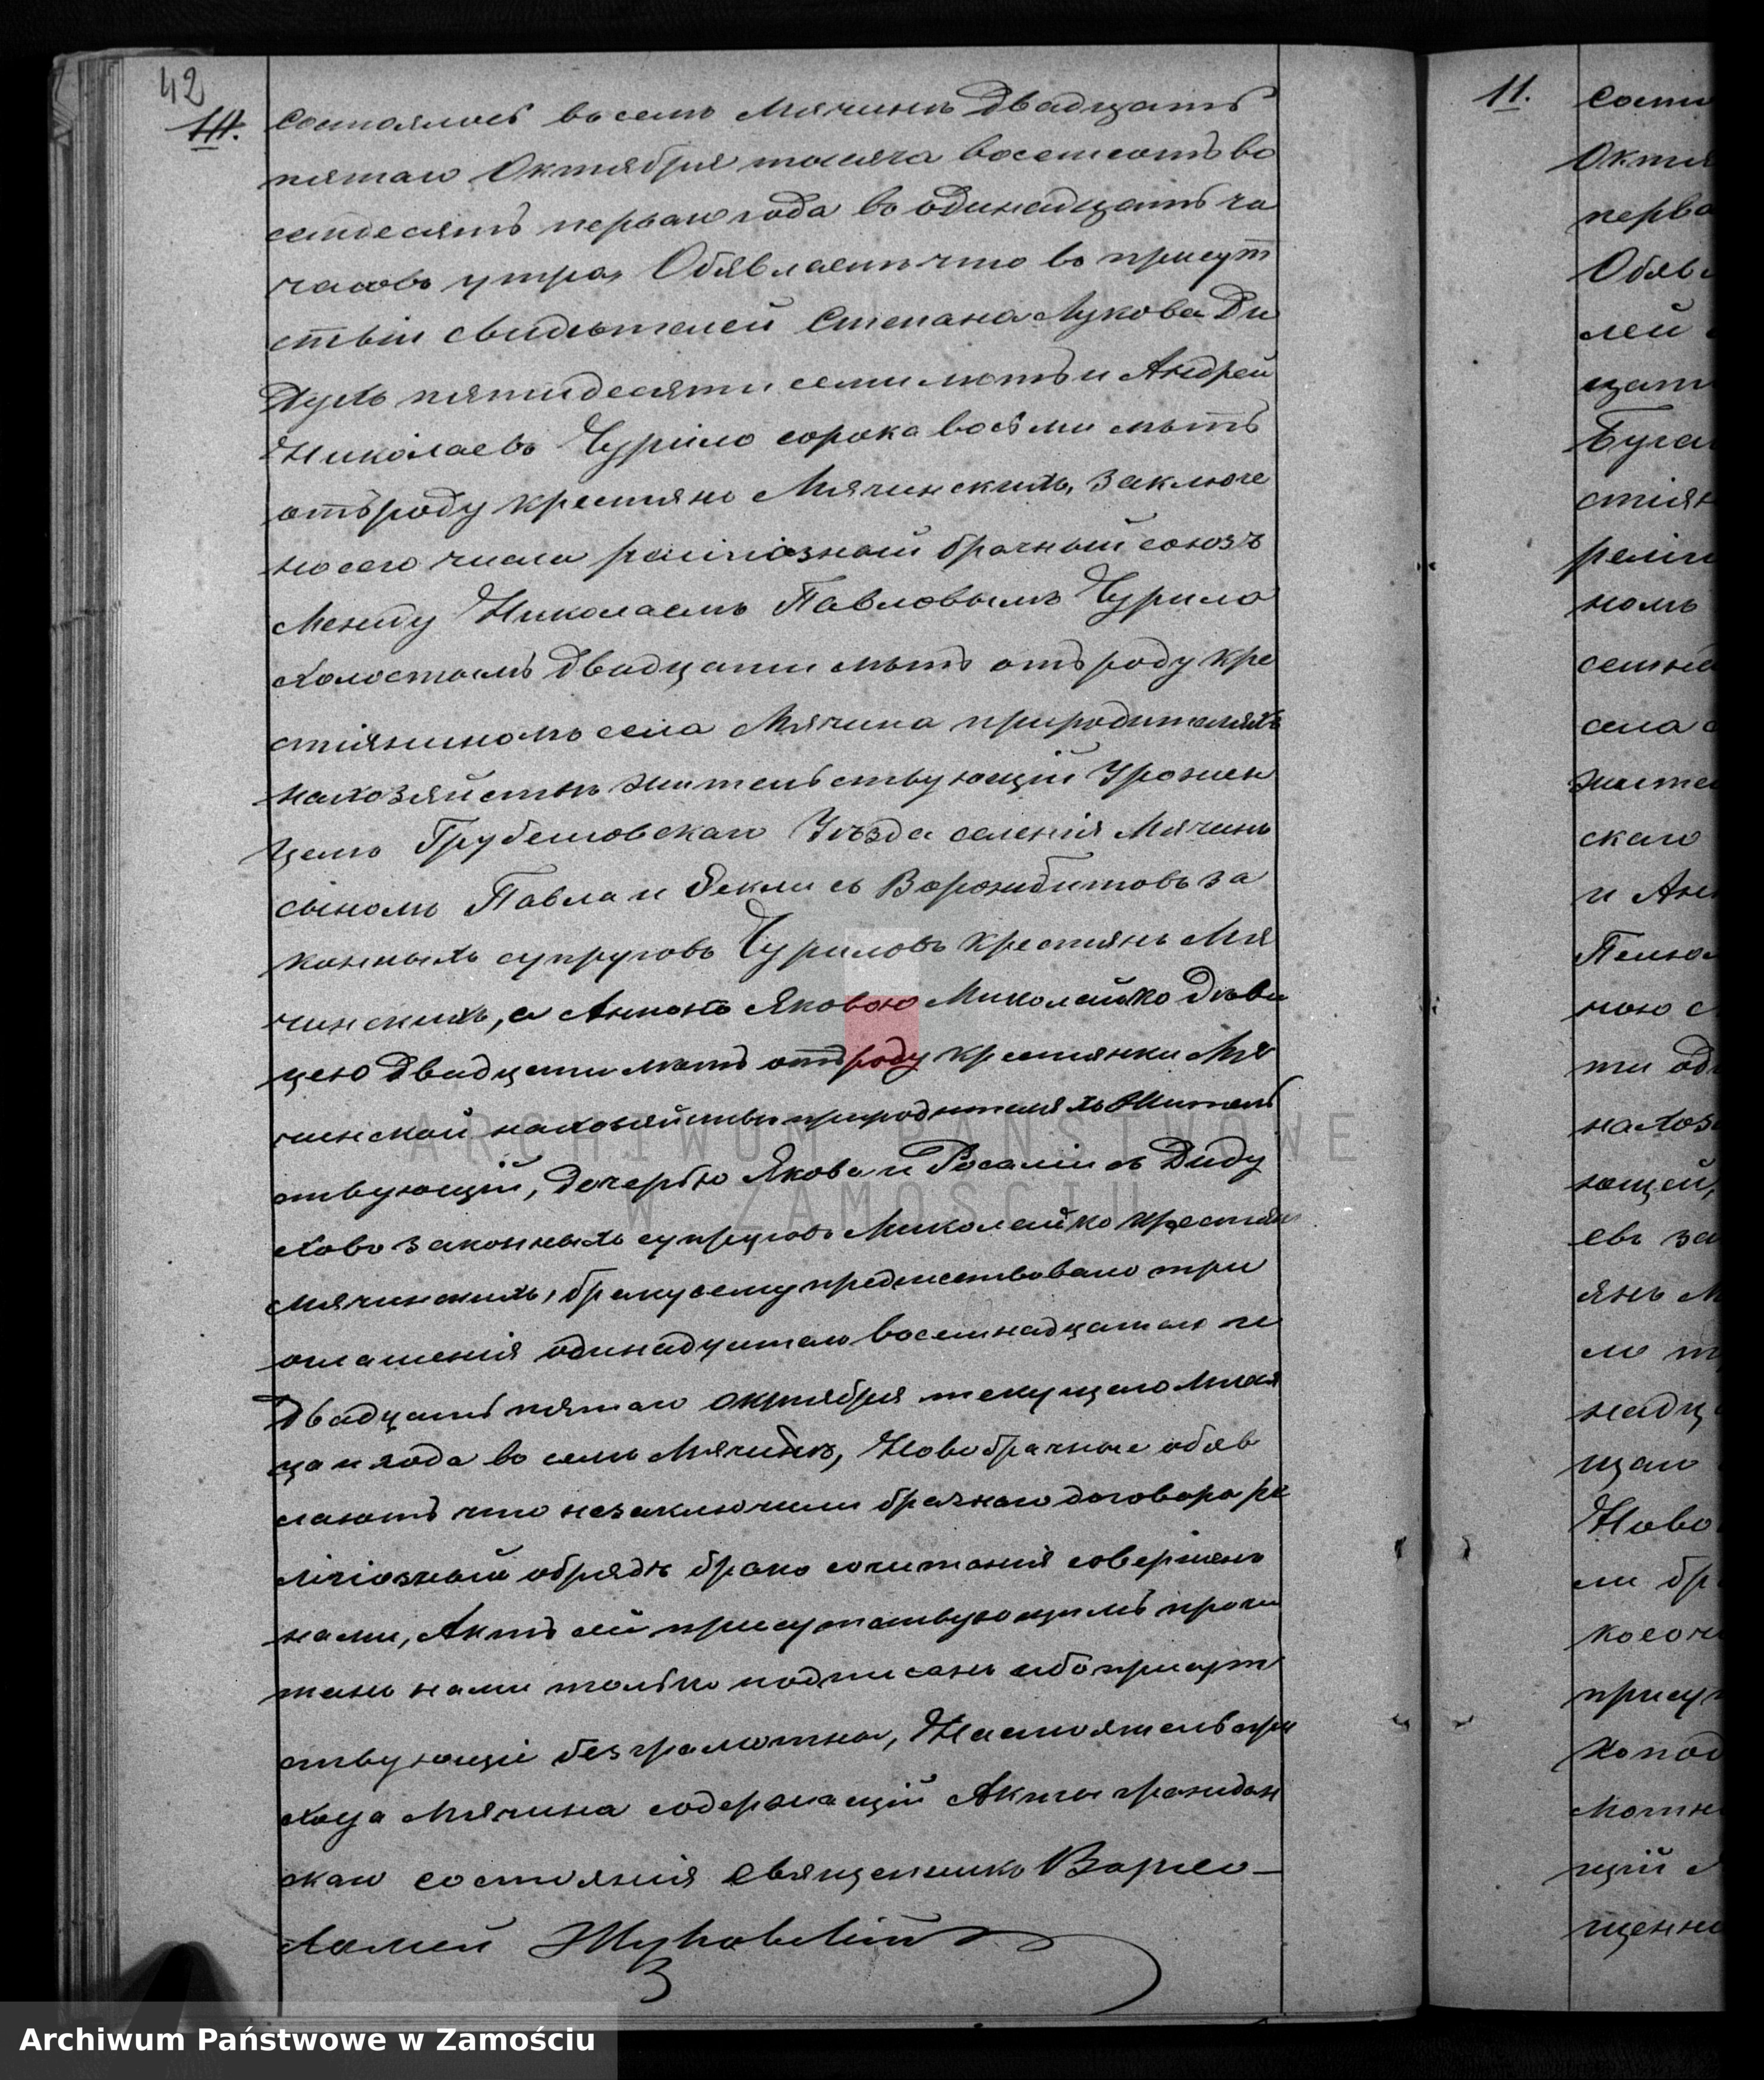 42
10.
Состоялось въ селѣ Мячинѣ Двадцать
пятаго Октября тысяча восемсотъ во
семдесятъ перваго года въ одинадцать ча
часовъ утра, Обявляемъ что въ присут
ствіи свидѣтелей Степана Лукова Ди
духъ пятидесяти семи лѣтъ и Андрей
Николаевъ Чурило сорока восьми лѣтъ
отъ роду крестянъ Мячинскихъ, заключе
но сего числа религіозный брачный союзъ
Между Николаемъ Павловымъ Чурило
Холостымъ Двадцати лѣтъ отъ роду кре
стіяниномъ села Мячина при родителяхъ
на хозяйствѣ жительствующій Урожен
цемъ Грубешовскаго Уѣзда селенія Мячинъ
сыномъ Павла и Феклы съ Ворожбитовъ за
конныхъ супруговъ Чуриловъ крестянъ Мя
чинскихъ, а Анною Яковою Миколайко Дѣви
цею Двадцати лѣтъ отъ роду крестянки Мя
чинской на хозяйствѣ при родителяхъ Житель
ствующій, Дочерью Якова и Розаліи съ Диду
ховъ законныхъ супруговъ Миколайко крестянъ
Мячинскихъ, браку сему предшествовало три
оглашенія одинадцатаго восемнадцатаго и
Двадцать пятаго Октября текущаго Мѣся
ца и года въ селѣ Мячинѣ, Новобрачные обяв
ляютъ что незаключили брачнаго договора ре
лігіозный обрядъ брако сочитанія совершенъ
нами, Актъ сей присутствующимъ прочи
танъ нами только подписанъ ибо присут
ствующіе безграмотны, Настоятель при
хода Мячина содержащій Акты граждан
скаго состоянія Священникъ Варѳо-
ламей Жуковскій
11.
Состо
Октя
перва
Обявл
лей
цати
Буга
стіян
религ
номъ
семна
села
жите
скаго
и Анн
Пелю
ною
ти од
на хоз
ющей,
евъ за
янъ М
ло т
надц
щаго
Ново
ли бр
ко соч
прису
хо под
мотн
щій
щенн